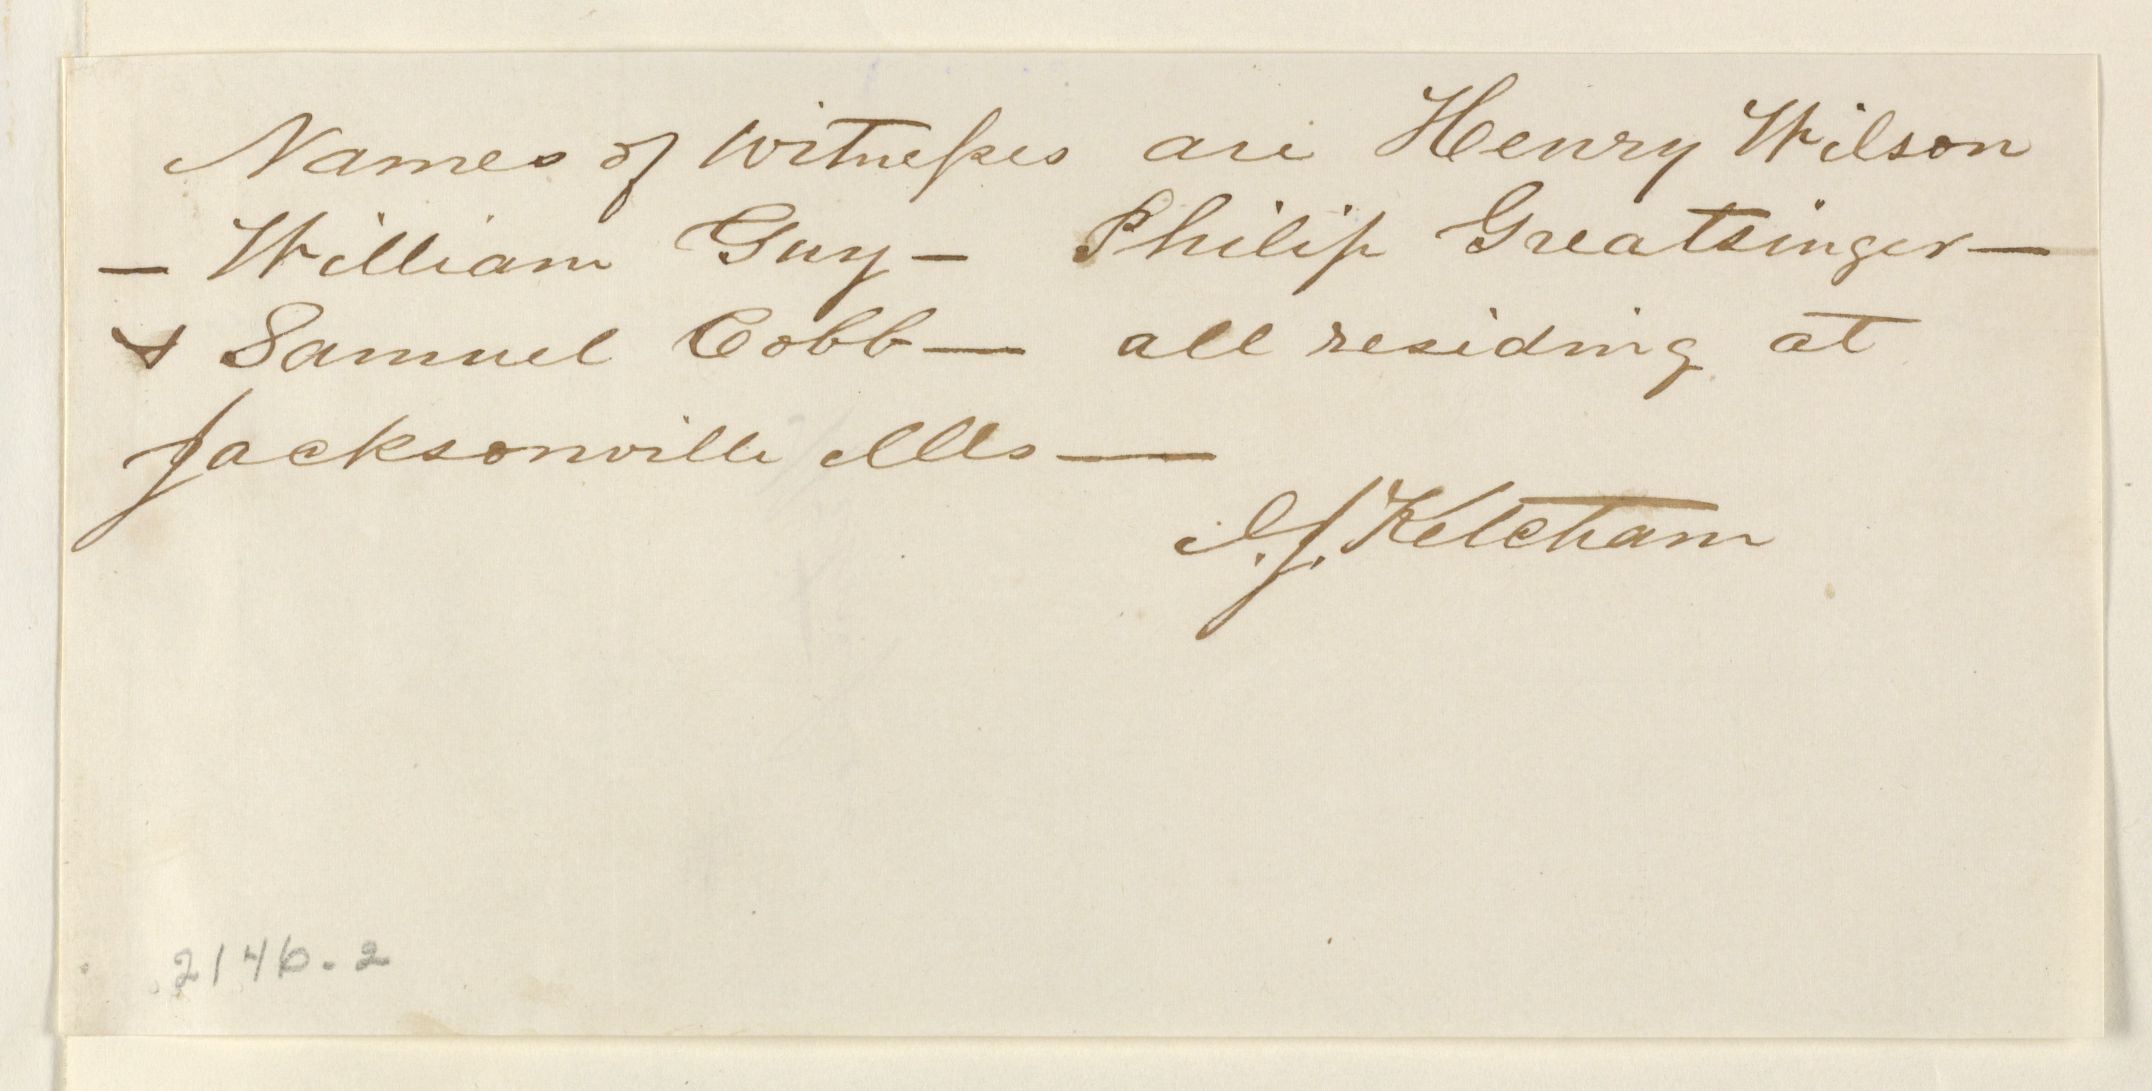 Names of Witnesses are Henry Wilson
— William Guy — Philip Greatsinger —
& Samuel Cobb — all residing at
Jacksonville Ills —
I.J. Ketcham
2146-2